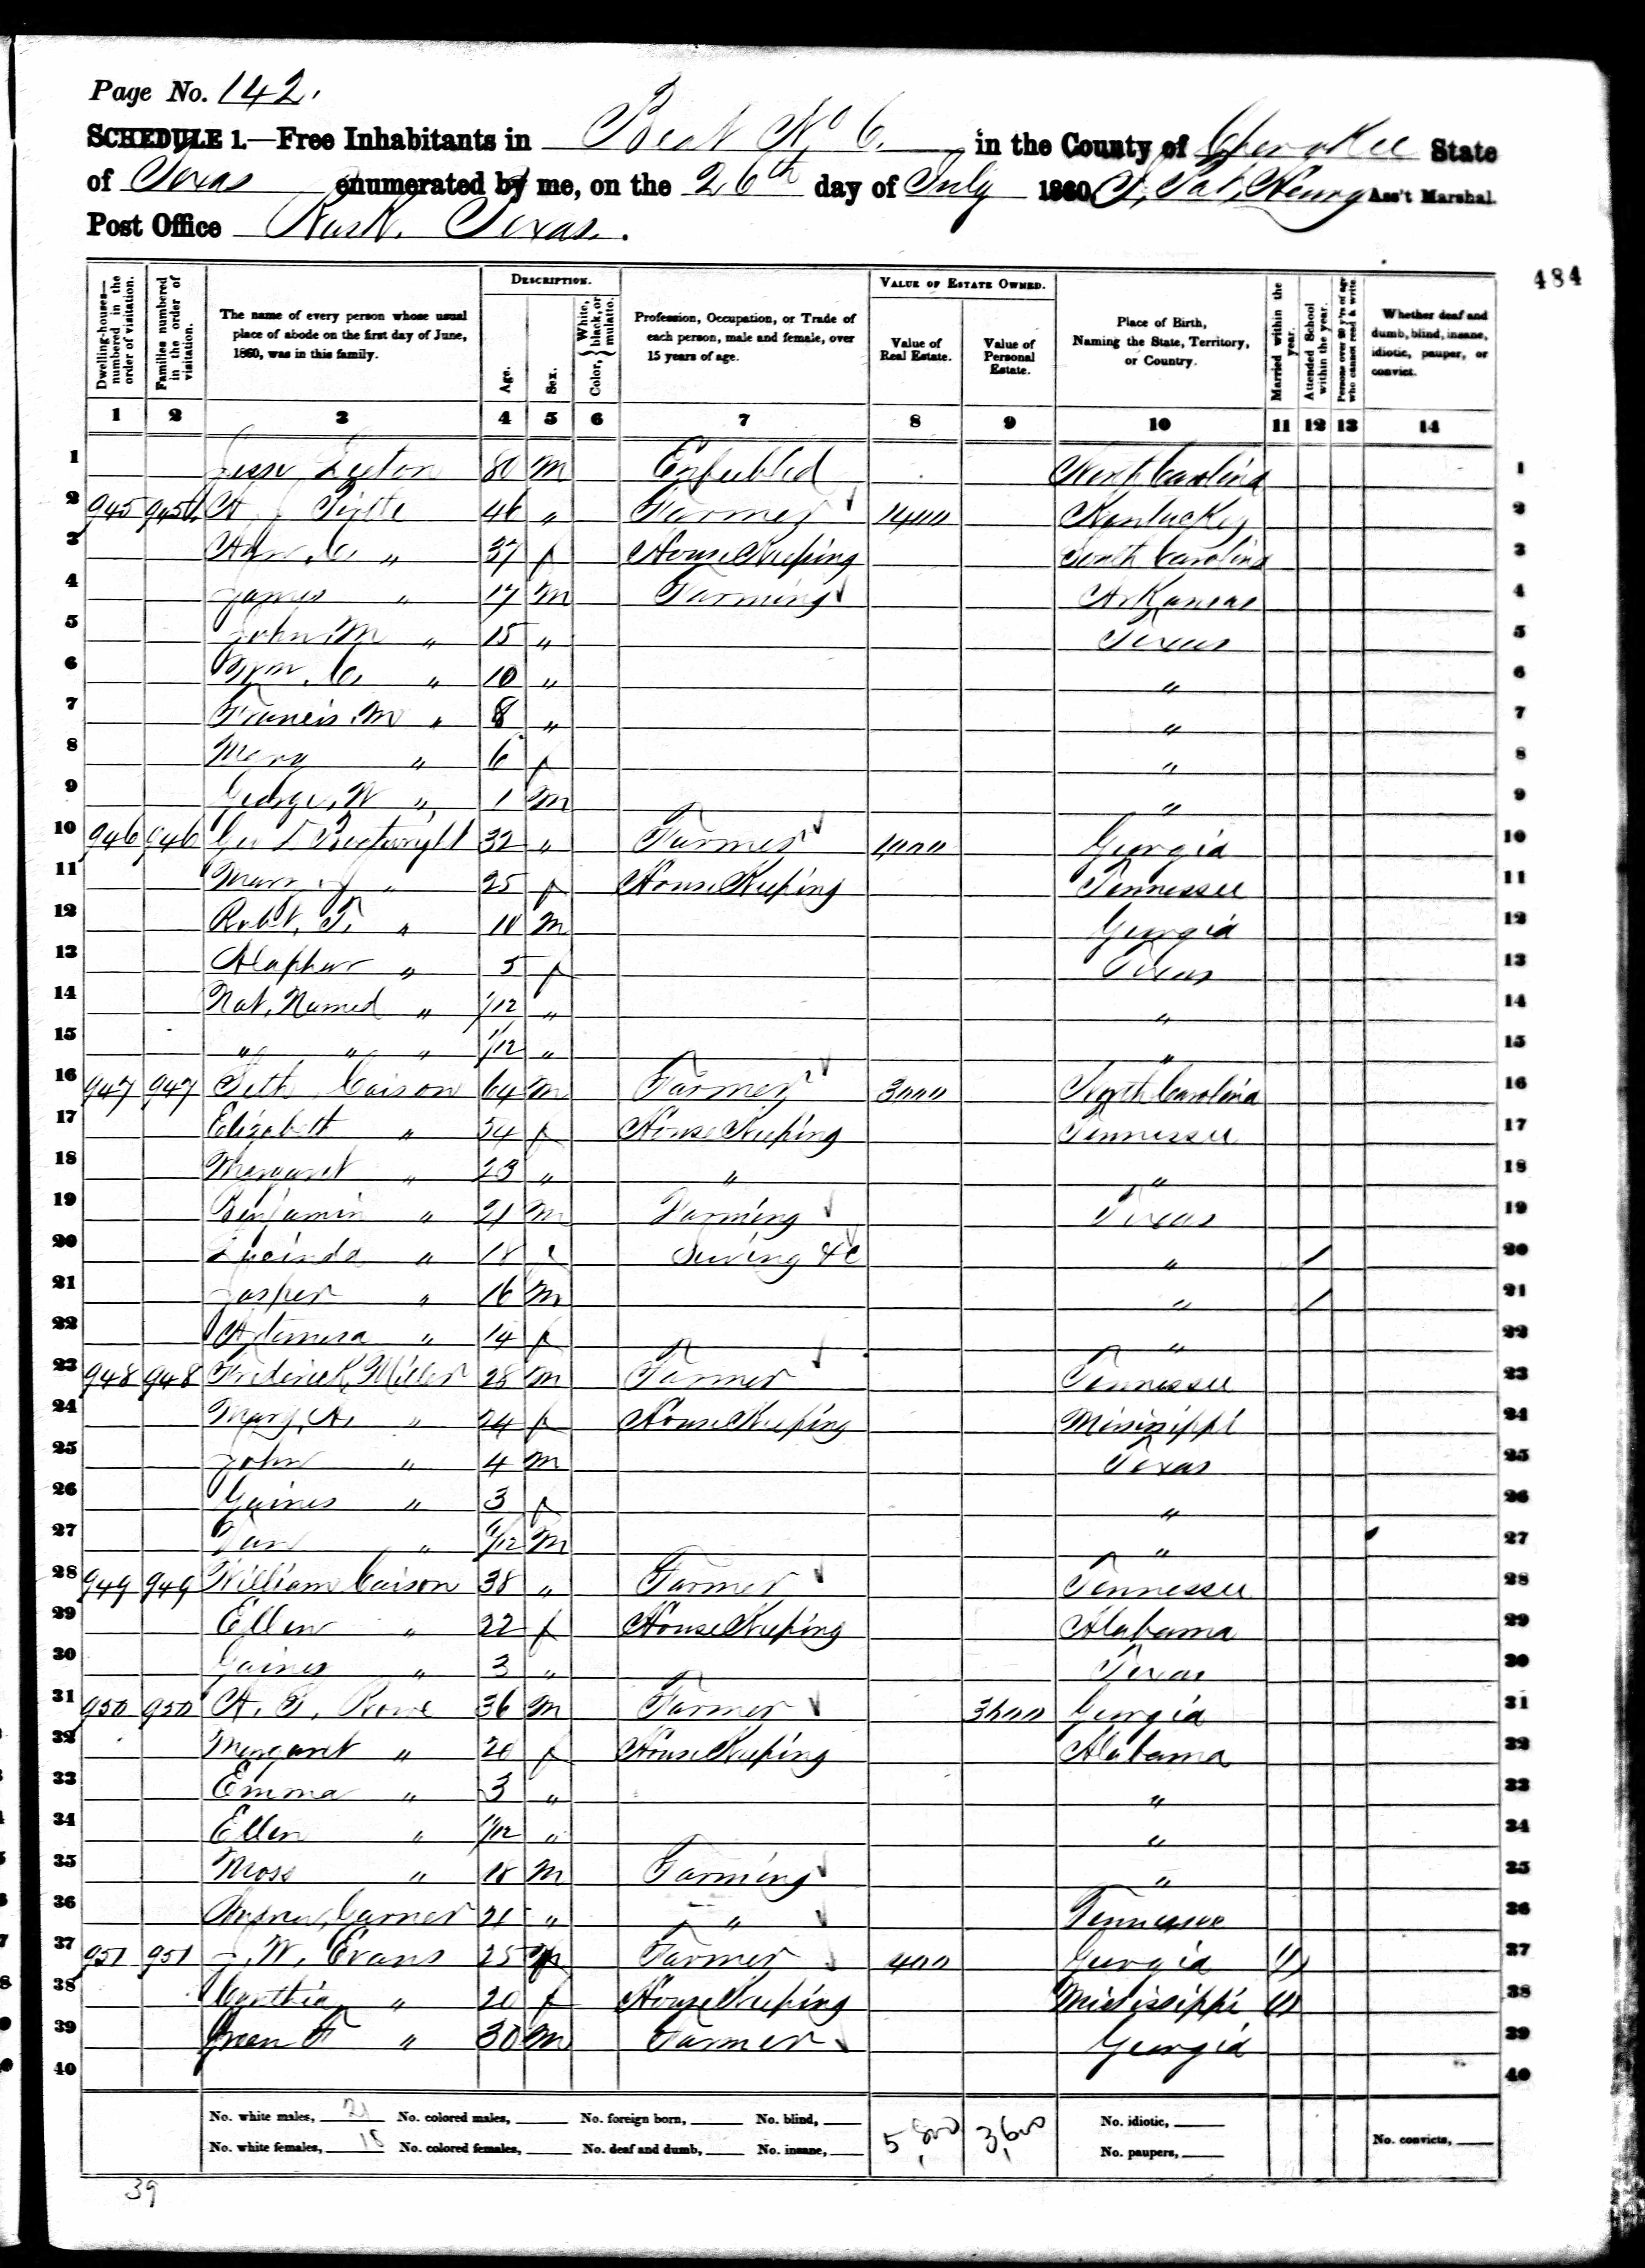 Page No. 142.
SCHEDULE 1.—Free Inhabitants in Beat No 6. in the County of Cherokee State
of Texas enumerated by me, on the 26th day of July 1860. Henry Ass't Marshal.
Post Office Rusk, Texas.
484
Dwelling-houses—numbered in the order of visitation.
Families numbered in the order of visitation.
The name of every person whose usual place of abode on the first day of June, 1860, was in this family.
DESCRIPTION.
Age.
Sex.
Color, { White, black, or mulatto.
Profession, Occupation, or Trade of each person, male and female, over 15 years of age.
VALUE OF ESTATE OWNED.
Value of Real Estate.
Value of Personal Estate.
Place of Birth, Naming the State, Territory, or Country.
Married within the year.
Attended School within the year.
Persons over 20 y'rs of age who cannot read & write.
Whether deaf and dumb, blind, insane, idiotic, pauper, or convict.
1 2 3 4 5 6 7 8 9 10 11 12 13 14
1 Jesse 80 m Enfeebled North Carolina 1
2 945 945 A J 46 " Farmer 1400 Kentucky 2
3 Ann. C. " 37 f House Keeping South Carolina 3
4 James " 17 m Farming Arkansas 4
5 John M " 15 " Texas 5
6 Wm. C. " 10 " " 6
7 Francis. M " 8 " " 7
8 Mary " 6 f " 8
9 George, W " 1 m " 9
10 946 946 Geo T 32 " Farmer 1000 Georgia 10
11 Mary J " 25 f House Keeping Tennessee 11
12 Robt. T. " 10 m Georgia 12
13 " 5 f Texas 13
14 Not, Named " 1/12 " " 14
15 " " " 1/12 " " 15
16 947 947 Seth Caison 64 m Farmer 3000 North Carolina 16
17 Elizabeth " 54 f House Keeping Tennessee 17
18 Margaret " 23 " " " 18
19 Benjamin " 21 m Farming Texas 19
20 Lucinda " 18 f Sewing &c " / 20
21 Jasper " 16 m " / 21
22 Artemisa " 14 f " 22
23 948 948 Frederick Miller 28 m Farmer Tennessee 23
24 Mary, A. " 24 f House Keeping Missisippi 24
25 John " 4 m Texas 25
26 Gaines " 3 f " 26
27 " /12 m " 27
28 949 949 William Caison 38 " Farmer Tennessee 28
29 Ellen " 22 f House Keeping Alabama 29
30 Gaines " 3 " Texas 30
31 950 950 A. T. Rowe 36 m Farmer 3600 Georgia 31
32 Margaret " 20 f House Keeping Alabama 32
33 Emma " 3 " " 33
34 Ellen " /12 " " 34
35 Moss " 18 m Farming " 35
36 Andrew Garner 21 " " Tennessee 36
37 951 951 J. W. Evans 25 m Farmer 400 Georgia 37
38 " 20 f House Keeping Mississippi 38
39 Green F " 30 m Farmer Georgia 39
40 40
No. white males, 21 No. colored males, No. foreign born, No. blind, 5,800 3,600 No. idiotic,
No. white females, 18 No. colored females, No. deaf and dumb, No. insane, No. paupers, No. convicts,
39